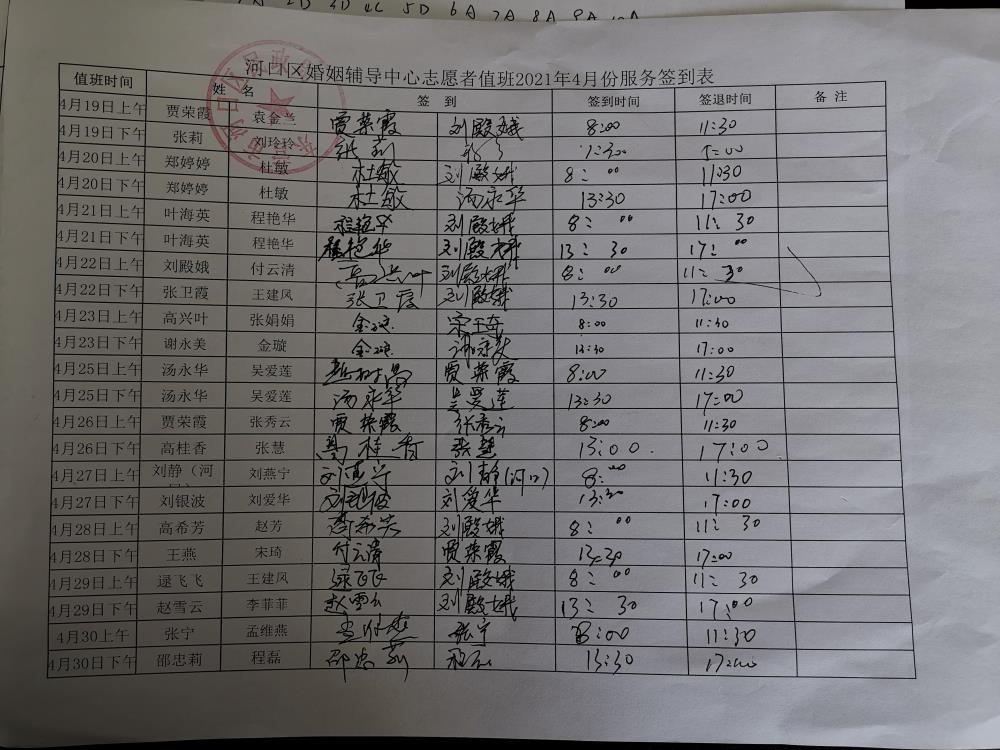 2D 5D 6A 7A 8A 9A
河口区婚姻辅导中心志愿者值班2021年4月份服务签到表
值班时间 姓 名 签 到 签到时间 签退时间 备 注
4月19日上午 贾荣霞 袁金兰 贾荣霞 刘殿娥 8:00 11:30
4月19日下午 张莉 刘玲玲 张莉
4月20日上午 郑婷婷 杜敏 杜敏 刘殿娥 8:00 11:30
4月20日下午 郑婷婷 杜敏 杜敏 汤永华 13:30 17:00
4月21日上午 叶海英 程艳华 程艳华 刘殿娥 8:00 11:30
4月21日下午 叶海英 程艳华 程艳华 刘殿娥 13:30 17:00
4月22日上午 刘殿娥 付云清 高兴叶 刘殿娥 8:00 11:30
4月22日下午 张卫霞 王建凤 张卫霞 刘殿娥 13:30 17:00
4月23日上午 高兴叶 张娟娟 金璇 8:00 11:30
4月23日下午 谢永美 金璇 金璇 谢永美 13:30 17:00
4月25日上午 汤永华 吴爱莲 贾荣霞 8:00 11:30
4月25日下午 汤永华 吴爱莲 汤永华 吴爱莲 13:30 17:00
4月26日上午 贾荣霞 张秀云 贾荣霞 张秀云 8:00 11:30
4月26日下午 高桂香 张慧 高桂香 张慧 13:00 17:00
4月27日上午 刘静（河 刘燕宁 刘燕宁 刘静(河口) 8:00 11:30
4月27日下午 刘银波 刘爱华 刘银波 刘爱华 13:30 17:00
4月28日上午 高希芳 赵芳 高希芳 刘殿娥 8:00 11:30
4月28日下午 王燕 宋琦 付云清 贾荣霞 13:30 17:00
4月29日上午 逯飞飞 王建凤 逯飞飞 刘殿娥 8:00 11:30
4月29日下午 赵雪云 李菲菲 赵雪云 刘殿娥 13:30 17:00
4月30上午 张宁 孟维燕 孟维燕 张宁 8:00 11:30
4月30日下午 邵忠莉 程磊 邵忠莉 程磊 13:30 17:00